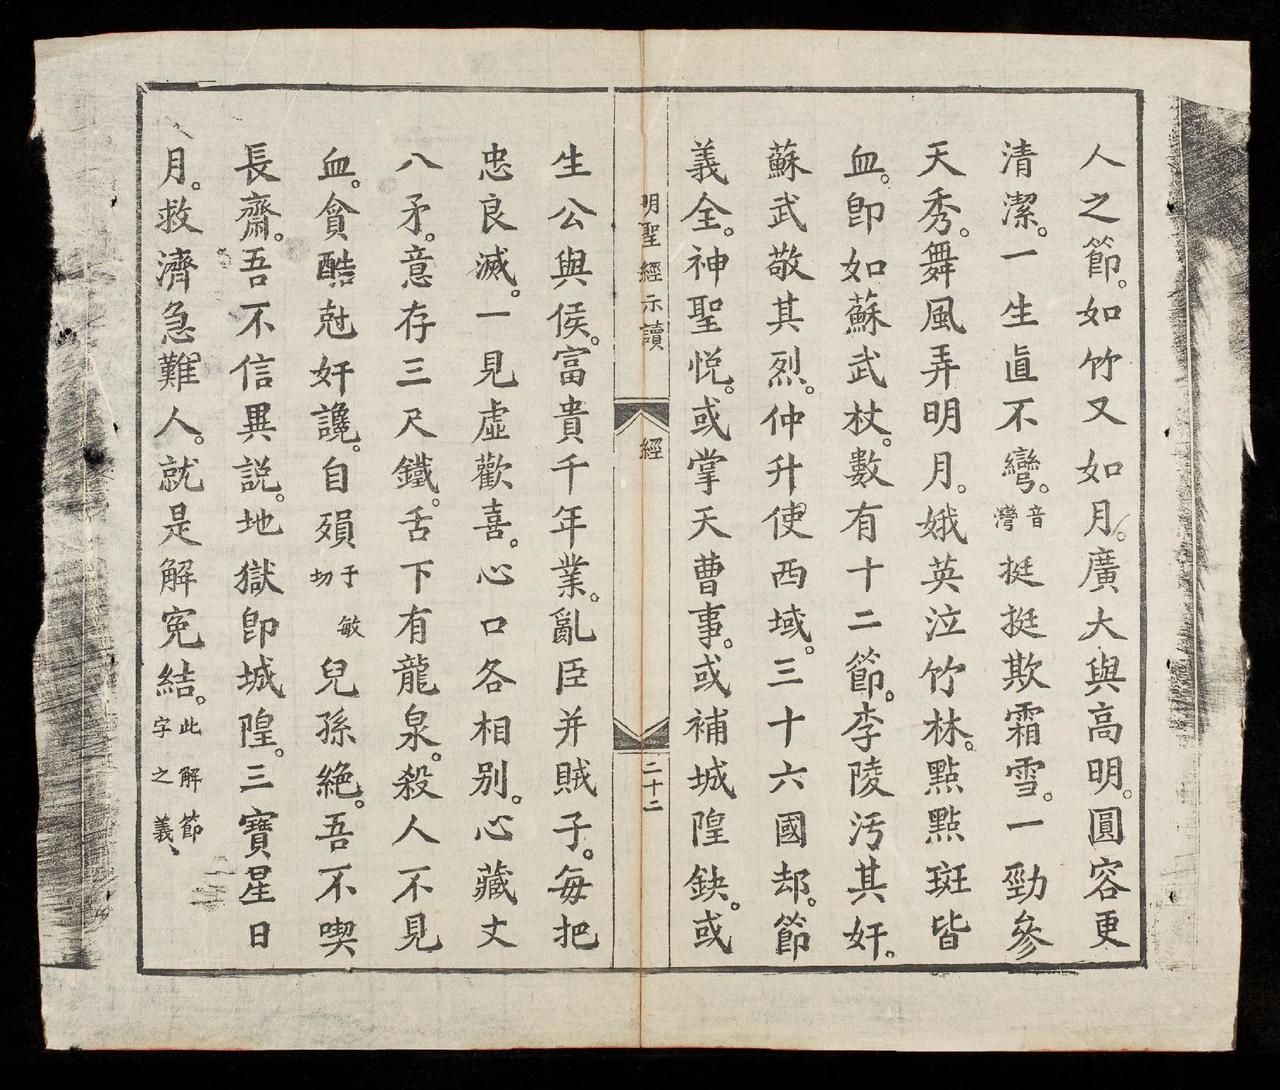 人之節。如竹又如月。廣大與高明。圓容更
清潔。一生直不彎。音灣挺挺欺霜雪。一勁參
天秀。舞風弄明月。娥英泣竹林。點點斑皆
血。即如蘇武杖。數有十二節。李陵汚其奸。
蘇武敬其烈。仲升使西域。三十六國却。節
義全。神聖悅。或掌天曹事。或補城隍鈌。或
明聖經示讀
經
二十二
生公與侯。富貴千年業。亂臣并賊子。每把
忠良滅。一見虛歡喜。心口各相別。心藏丈
八矛。意存三尺鐵。舌下有龍泉。殺人不見
血。貪酷尅奸讒。自殞于敏切兒孫絶。吾不喫
長齋。吾不信異説。地獄即城隍。三寶星日
月。救濟急難人。就是解寃結。此解節字之義、